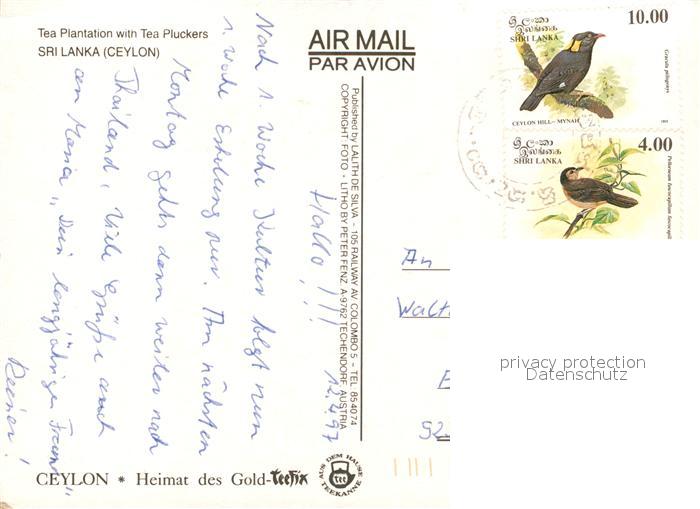 Tea Plantation with Tea Pluckers
SRI LANKA (CEYLON)
AIR MAIL
PAR AVION
Hallo!!! 12.4.97
Nach 1. Woche Kultur folgt nun
1. Woche Erholung nur. Am nächsten
Montag gehts dann weiter nach
Thailand. Viele Grüße auch
an Maria „Dein langjähriger Freund"
Reiner!
Published by LALITH DE SILVA - 105 RAILWAY AV COLOMBO 5 - TEL 854074
COPYRIGHT FOTO - LITHO BY PETER FENZ, A-9762 TECHENDORF, AUSTRIA
ශ්‍රී ලංකා
இலங்கை
SRI LANKA
10.00
Gracula ptilogenys
CEYLON HILL-MYNAH
ශ්‍රී ලංකා
இலங்கை
SRI LANKA
4.00
Pellorneum fuscocapillum
An
Walt
E
92
privacy protection
Datenschutz
CEYLON * Heimat des Gold-Teefix
AUS DEM HAUSE
tee
TEEKANNE